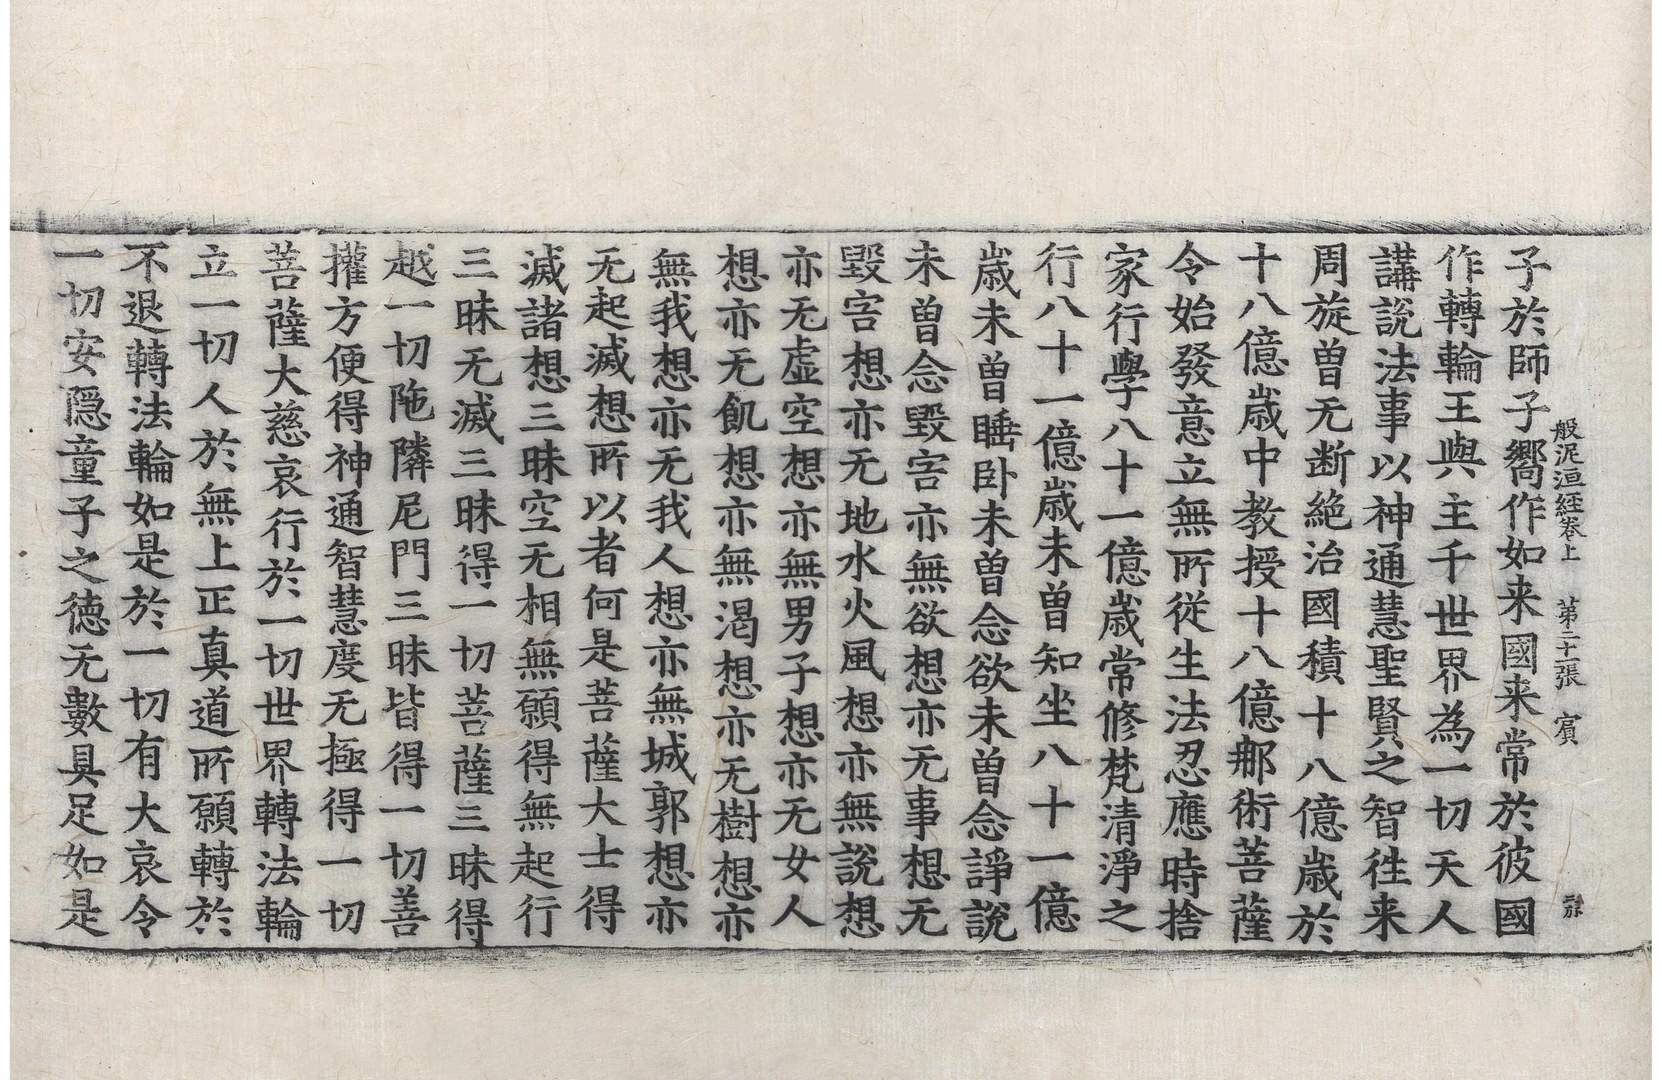 般泥洹經卷上　第二十張　賓
子於師子嚮作如来國来常於彼國
作轉輪王與主千世界為一切天人
講說法事以神通慧聖賢之智往来
周旋曽无断絶治國積十八億歳於
十八億歳中教授十八億郍術菩薩
令始發意立無所従生法忍應時捨
家行學八十一億歳常修梵清淨之
行八十一億歳未曽知坐八十一億
歳未曽睡卧未曽念欲未曽念諍說
未曽念毀害亦無欲想亦无事想无
毀害想亦无地水火風想亦無說想
亦无虚空想亦無男子想亦无女人
想亦无飢想亦無渴想亦无樹想亦
無我想亦无我人想亦無城郭想亦
无起滅想所以者何是菩薩大士得
滅諸想三昧空无相無願得無起行
三昧无滅三昧得一切菩薩三昧得
越一切陁隣尼門三昧皆得一切善
攉方便得神通智慧度无極得一切
菩薩大慈哀行於一切世界轉法輪
立一切人於無上正真道所願轉於
不退轉法輪如是於一切有大哀令
一切安隠童子之德无數具足如是